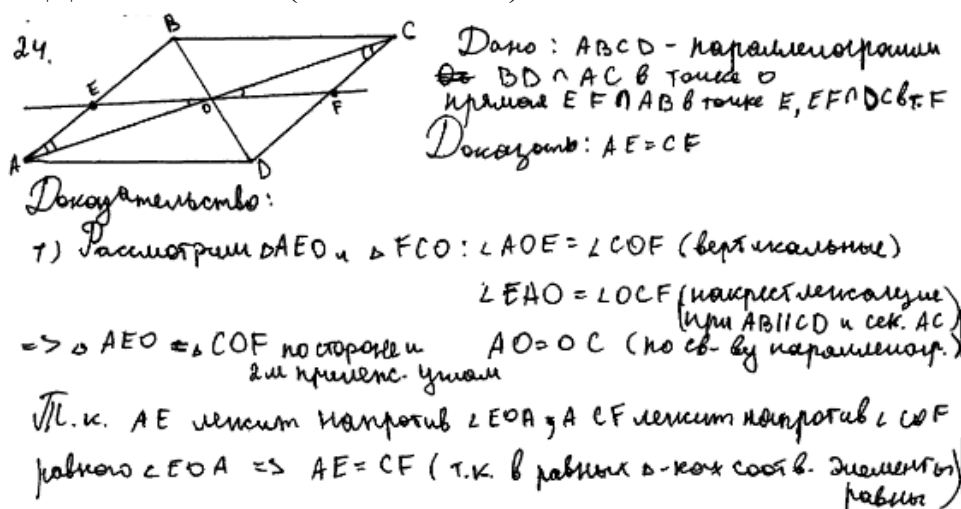 24.
B
C
E
O
F
A
D
Дано: ABCD - параллелограмм
BD ∩ AC в точке O
прямая EF ∩ AB в точке E, EF ∩ DC в т. F
Доказать: AE = CF
Доказательство:
1) Рассмотрим ΔAEO и Δ FCO: ∠AOE = ∠COF (вертикальные)
∠EAO = ∠OCF (накрест лежащие
при AB||CD и сек. AC)
=> Δ AEO = Δ COF по стороне и AO = OC (по св-ву параллелогр.)
2м прилеж. углам
Т.к. AE лежит напротив ∠EOA, а CF лежит напротив ∠COF
равного ∠EOA => AE = CF (т.к. в равных Δ-ках соотв. элементы
равны)